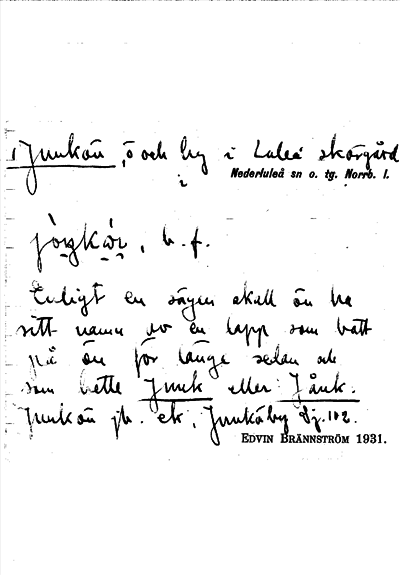 Junkön, ö och by i Luleå skärgård
i Nederluleå sn o. tg. Norrb. l.
b. f.
Enligt en sägen skall ön ha
sitt namn av en lapp som bott
på ön för länge sedan och
som hette Junk eller Jånk.
Junkön jb. ek, Junköby Sj. 102.
EDVIN BRÄNNSTRÖM 1931.